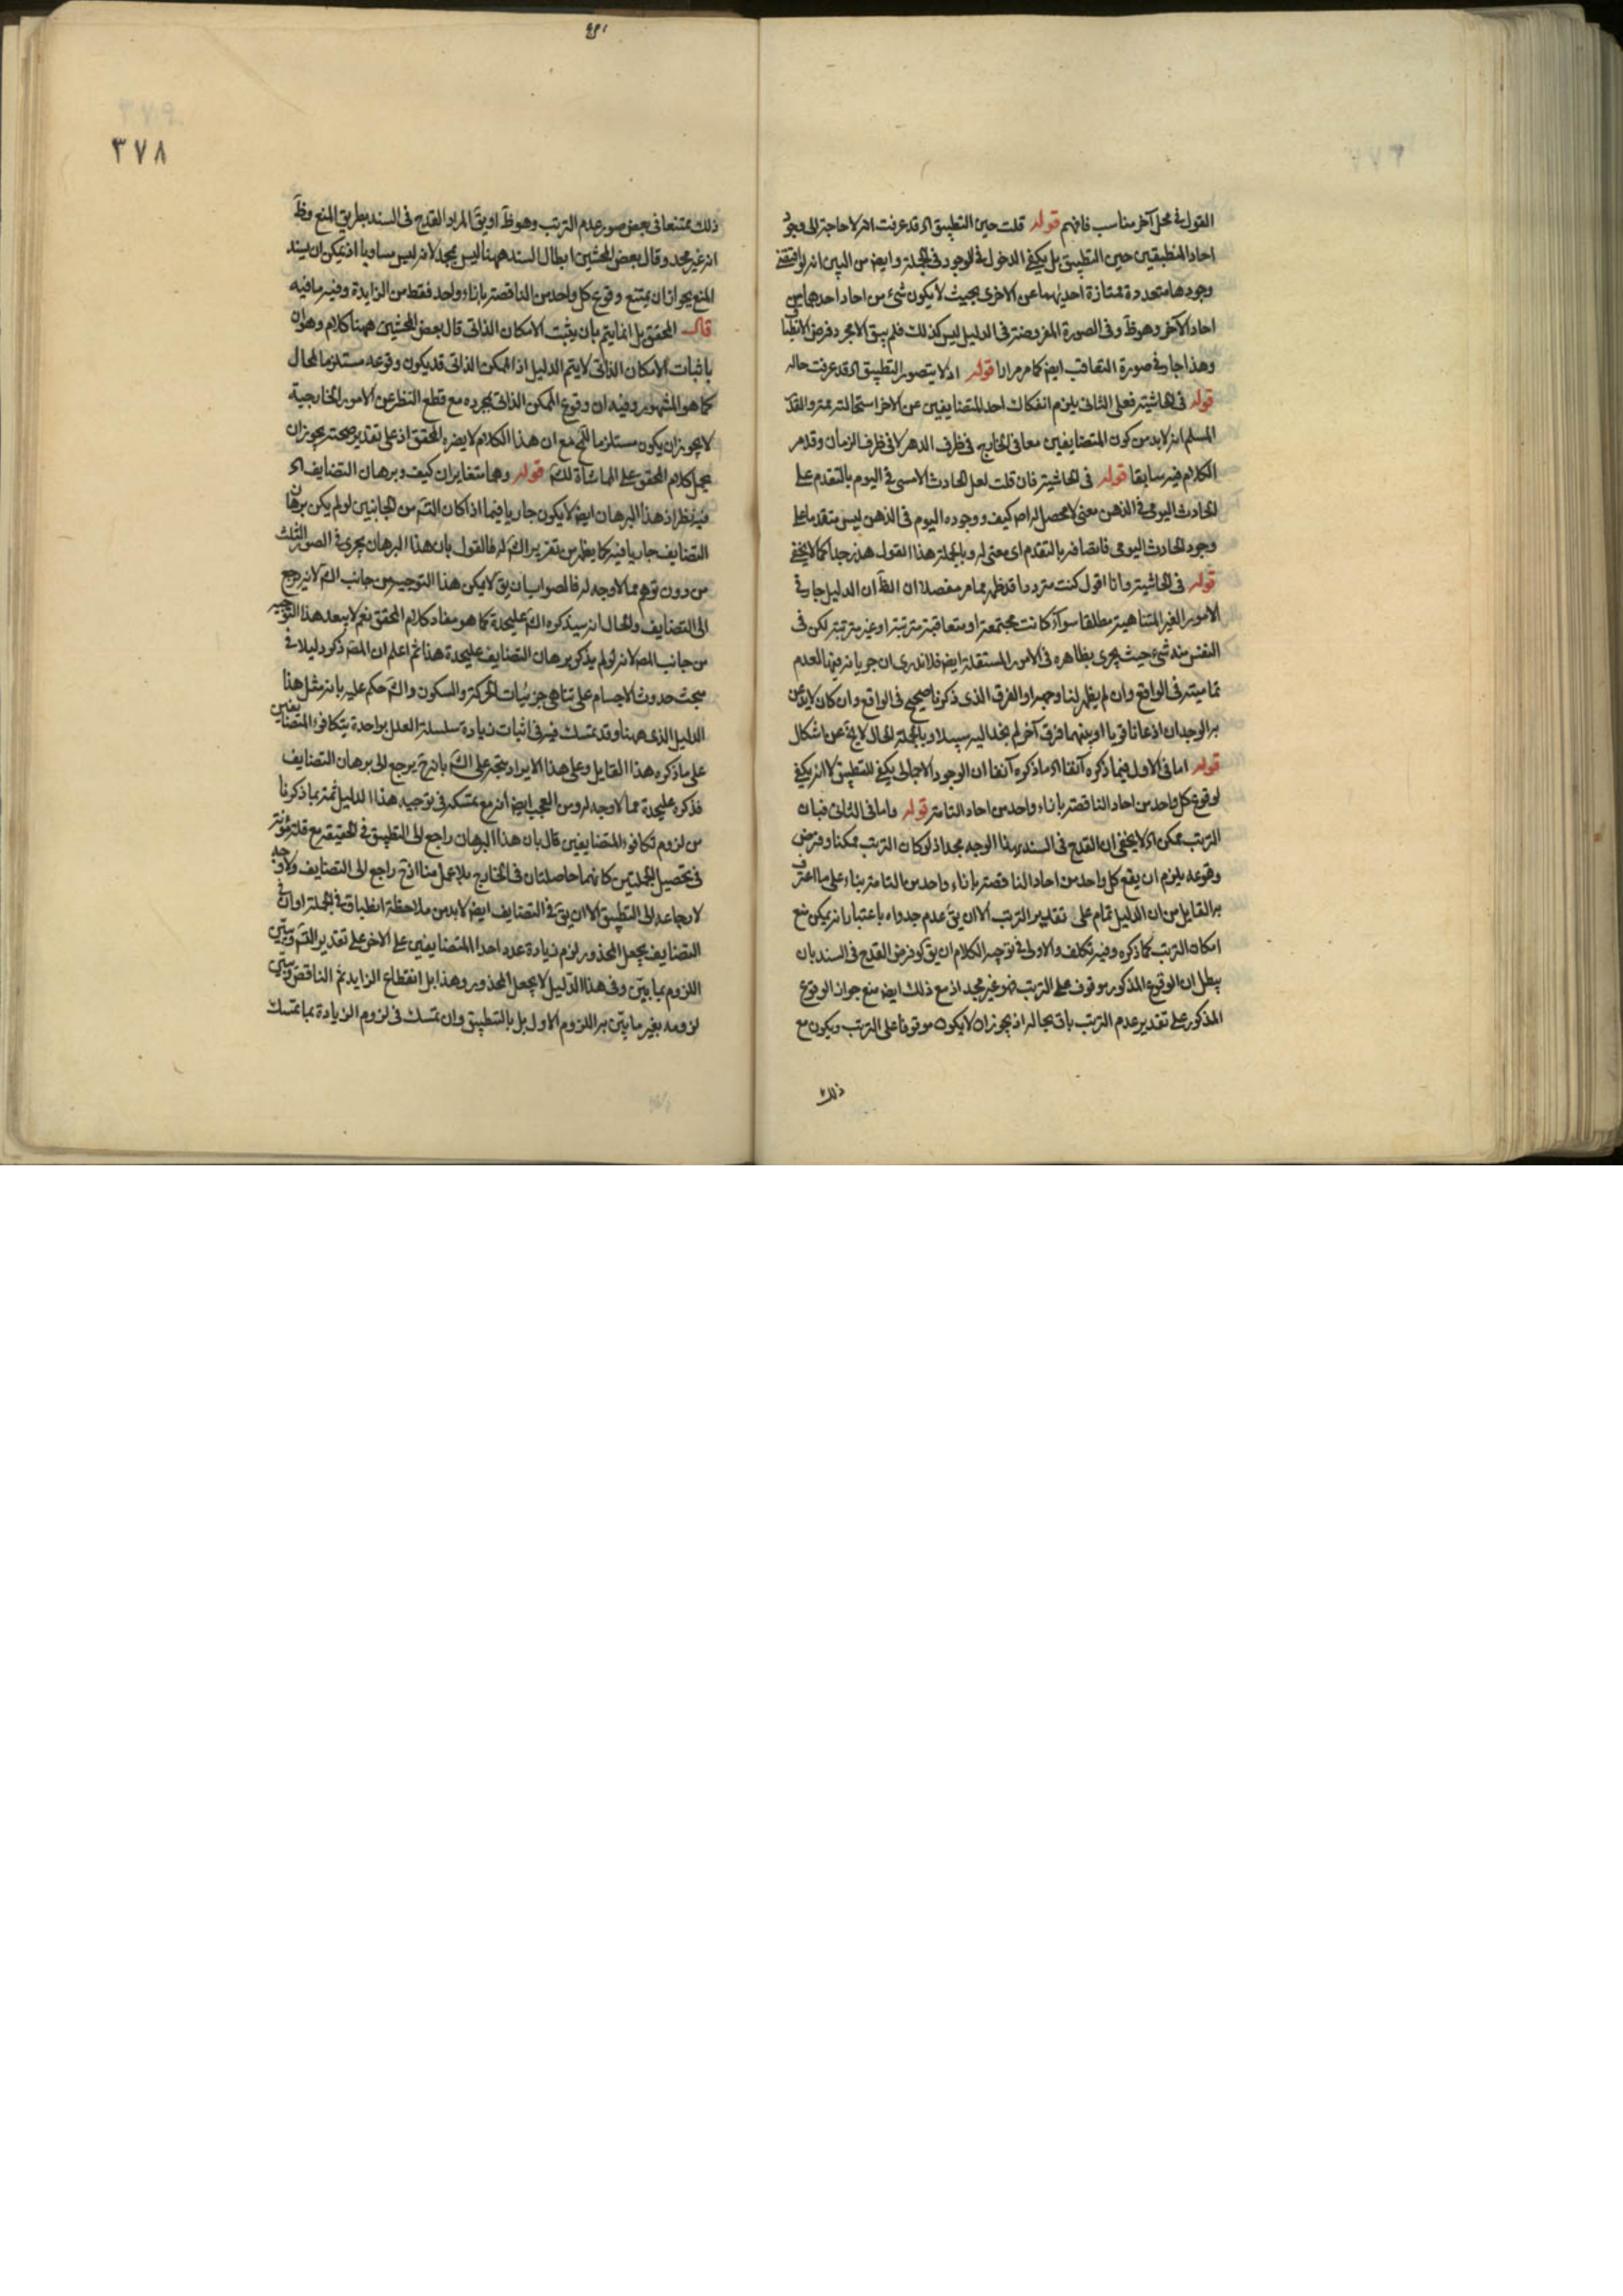 القول فی محل آخر مناسب فافهم قوله قلت حین التطبیق اه قد عرفت انه لا حاجة الی وجود
احاد المنطبقین حین التطبیق بل یکفی الدخول فی الوجود فی الجملة وایض من البین انه لو اقتضی
وجودها متعددة ممتازة احدیهما عن الاخری بحیث لا یکون شئ من احاد احدهما من
احاد الآخر وهو ظ وفی الصورة المفروضة فی الدلیل لیس کذلک فلم یبق الا مجرد فرض الانطباق
وهذا جار فی صورة التعاقب ایض کما مر مرارا قوله اذ لا یتصور التطبیق اه قد عرفت حاله
قوله فی الحاشیة فعلی الثانی یلزم انفکاک احد المتضایفین عن الاخر استحالته ممة والقدر
المسلم انه لابد من کون المتضایفین معا فی الخارج فی ظرف الدهر لا فی ظرف الزمان وقد مر
الکلام فیه سابقا قوله فی الحاشیة فان قلت لعل الحادث الامسی فی الیوم بالتقدم علی
الحادث الیومی فی الذهن معنی لا محصل له اه کیف ووجوده الیوم فی الذهن لیس متقدما علی
وجود الحادث الیومی فاتصافه بالتقدم ای معنی له وبالجملة هذا القول هذر جدا کما لا یخفی
قوله فی الحاشیة وانا اقول کنت مترددا قد ظهر مما مر مفصلا ان الظ ان الدلیل جار فی
الامور الغیر المتناهیة مطلقا سوآء کانت مجتمعة او متعاقبة مترتبة او غیر مترتبة لکن فی
النفس منه شئ حیث یجری بظاهره فی الامور المستقبلة ایض فلا ندری ان جریانه فیها لعدم
تمامیته فی الواقع وان لم یظهر لنا وجهه او الفرق الذی ذکرنا صحیح فی الواقع وان کان لا یذعن
به الوجدان اذعانا قویا او بینهما فرق آخر لم نجد الیه سبیلا وبالجملة الحال لا یخ عن اشکال
قوله اما فی الاول فبما ذکره آنفا اه ما ذکره آنفا ان الوجود الاجمالی یکفی للتطبیق لا انه یکفی
لوقوع کل واحد من احاد الناقصة بازاء واحد من احاد التامة قوله واما فی الثانی فبان
الترتب ممکن اه لا یخفی ان القدح فی السند بهذا الوجه مجد اذ لو کان الترتب ممکنا وفرض
وقوعه یلزم ان یقع کل واحد من احاد الناقصة بازاء واحد من التامة بناء علی ما اعترف
به القایل من ان الدلیل تمام علی تقدیر الترتب الا ان یق عدم جدواه باعتبار انه یمکن منع
امکان الترتب کما ذکره وفیه تکلف والاولی فی توجیه الکلام ان یق لو فرض القدح فی السند بان
یبطل ان الوقوع المذکور موقوف علی الترتب فهو غیر مجد اذ مع ذلک ایض منع جواز الوقوع
المذکور علی تقدیر عدم الترتب باق بحاله اذ یجوز ان لا یکون موقوفا علی الترتب ویکون مع
ذلک
٣٧٨
ذلک ممتنعا فی بعض صور عدم الترتب وهو ظ او یق المراد القدح فی السند بطریق المنع وظ
انه غیر مجد وقال بعض المحشین ابطال السند ههنا لیس بمجد لانه لیس مساویا اذ یمکن ان یسند
المنع بجواز ان یمتنع وقوع کل واحد من الناقصة بازاء واحد فقط من الزایدة وفیه ما فیه
قال المحقق بل انما یتم بان یثبت الامکان الذاتی قال بعض المحشین ههنا کلام وهو ان
باثبات الامکان الذاتی لا یتم الدلیل اذ الممکن الذاتی قد یکون وقوعه مستلزما لمحال
کما هو المشهور وفیه ان وقوع الممکن الذاتی بمجرده مع قطع النظر عن الامور الخارجیة
لا یجوز ان یکون مستلزما للمح مع ان هذا الکلام لا یضره المحقق اذ علی تقدیر صحته یجوز ان
یحمل کلام المحقق علی المماشاة لک قوله وهما متغایران کیف وبرهان التضایف اه
فیه نظر اذ هذا البرهان ایض لا یکون جاریا فیما اذا کان التسم من الجانبین لو لم یکن برهان
التضایف جاریا فیه کما یظهر من تقریر الش له فالقول بان هذا البرهان یجری فی الصور الثلث
من دون توهم مما لا وجه له فالصواب ان یق لا یمکن هذا التوجیه من جانب الش لانه یرجع
الی التضایف والحال انه سیذکره الش علیحدة کما هو مفاد کلام المحقق نعم لا یبعد هذا التوجیه
من جانب المص لانه لو لم یذکر برهان التضایف علیحدة هذا ثم اعلم ان المص ذکر دلیلا فی
مبحث حدوث الاجسام علی تناهی جزئیات الحرکة والسکون والش حکم علیه بانه مثل هذا
الدلیل الذی ههنا وقد تمسک فیه فی اثبات زیادة سلسلة العلل بواحدة بتکافوء المتضایفین
علی ما ذکره هذا القایل وعلی هذا الایراد یتجه علی الش بانه ح یرجع الی برهان التضایف
فذکره علیحدة مما لا وجه له ومن العجب ایض انه مع تمسکه فی توجیه هذا الدلیل ثمة بما ذکرنا
من لزوم تکافوء المتضایفین قال بان هذا البرهان راجع الی التطبیق فی الحقیقة مع قلة مؤنته
فی تحصیل الجملتین کانهما حاصلتان فی الخارج بلا عمل منا اذ ح راجع الی التضایف ولا وجه
لارجاعه الی التطبیق الا ان یق فی التضایف ایض لابد من ملاحظة انطباق فی الجملة او ان فی
التضایف یجعل المحذور لزوم زیادة عدد احد المتضایفین علی الاخر علی تقدیر التسم ویبین
اللزوم بما یبین وفی هذا الدلیل لا یجعل المحذور وهذا بل انقطاع الزاید ثم الناقص ویبین
لزومه بغیر ما یبین به اللزوم الاول بل بالتطبیق وان تمسک فی لزوم الزیادة بما تمسک